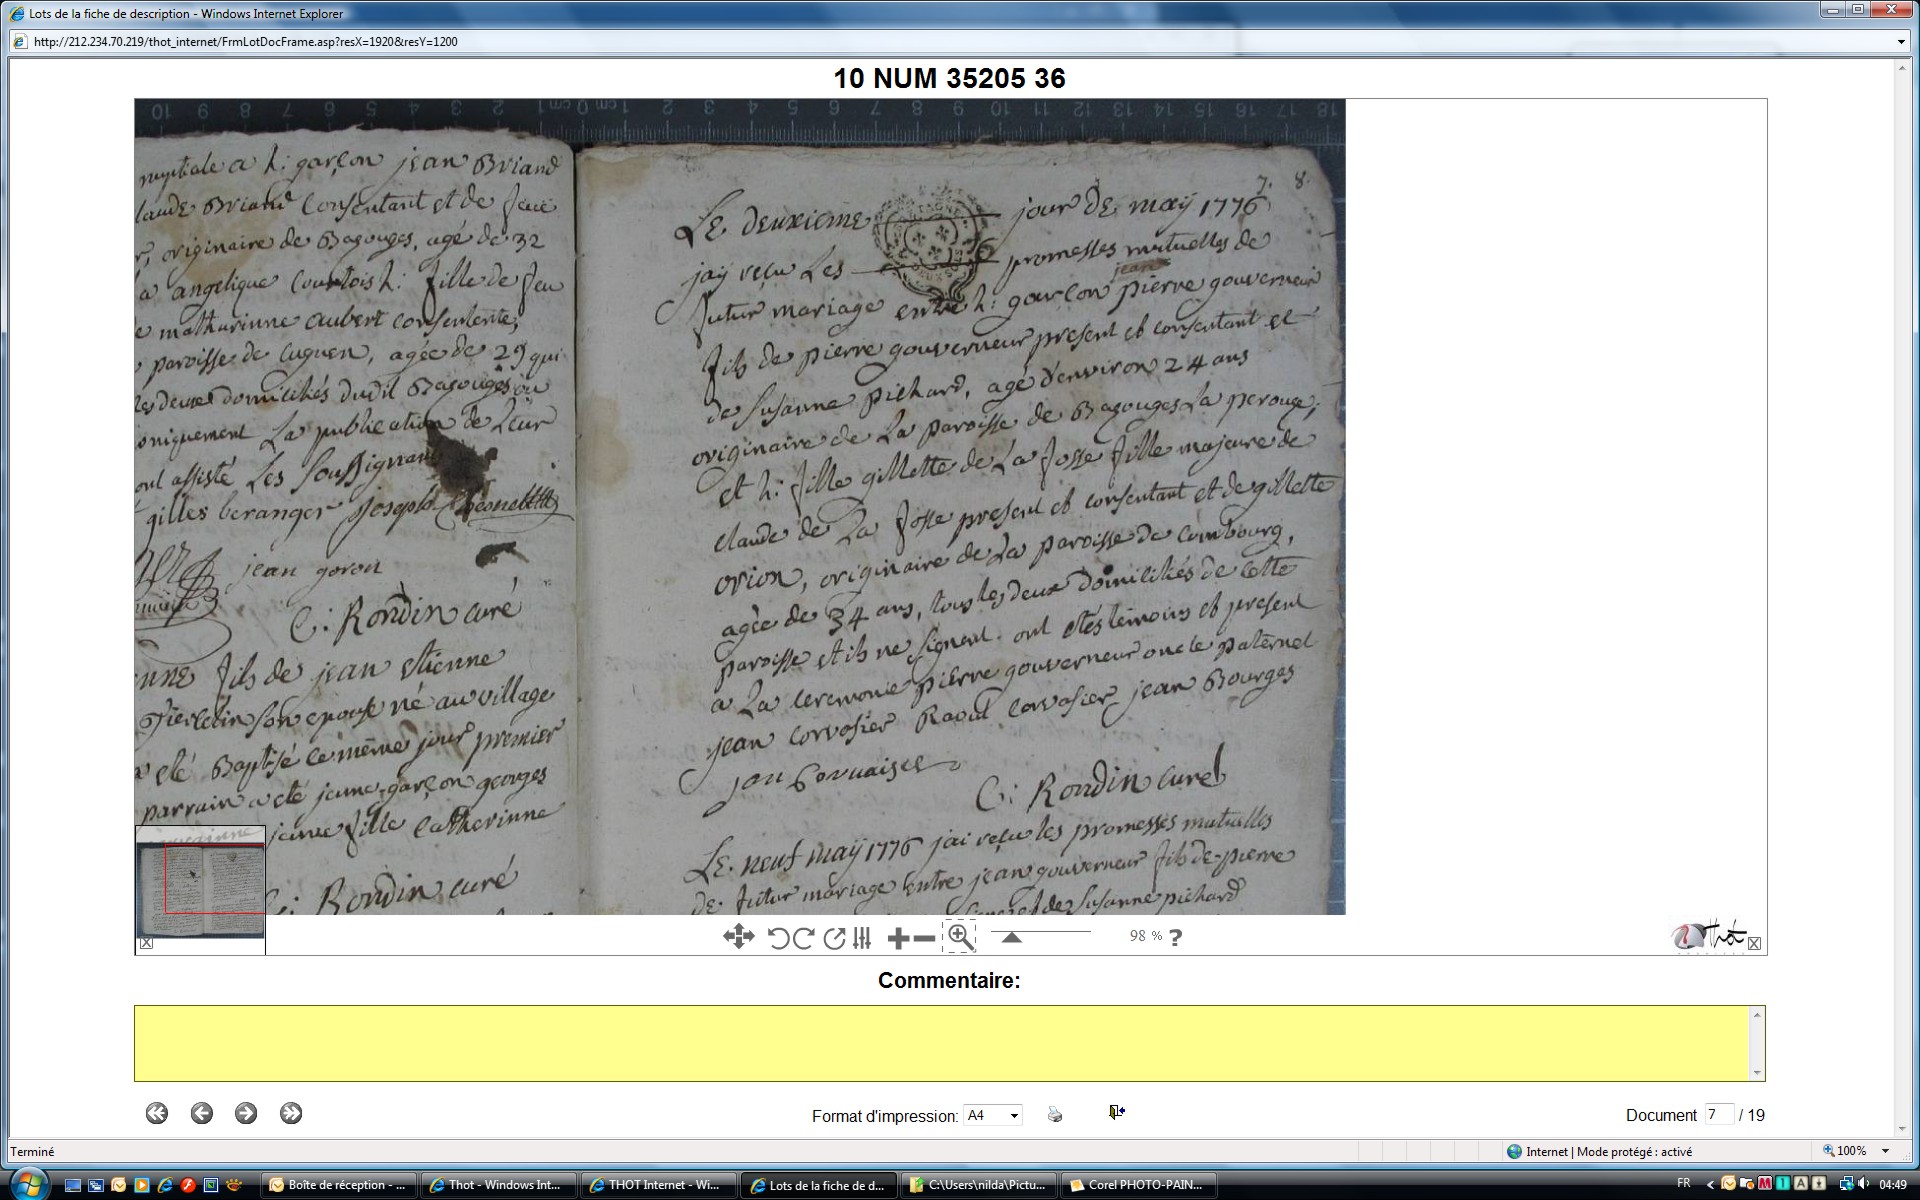 Lots de la fiche de description - Windows Internet Explorer
http://212.234.70.219/thot_internet/FrmLotDocFrame.asp?resX=1920&resY=1200
10 NUM 35205 36
10 9 8 7 6 5 4 3 2 1 cm 0 cm 1 2 3 4 5 6 7 8 9 10 11 12 13 14 15 16 17 18
nuptiale a h: garçon jean Briand
laude Briand consentant et de feue
originaire de Bazouges, agé de 32
a angelique Courtois h: fille de feu
e mathurinne aubert consentente,
paroisse de Cuguen, agée de 29 qui
les deux domiciliés dudit Bazouges ou
oniquement La publication de Leur
ont assisté Les soussignants
gilles beranger joseph
jean goron
C: Rondin curé
nne fils de jean etienne
son epouse né au village
a eté Baptisé le même jour premier
parrain a eté jeune garçon georges
jeune fille Catherinne
C: Rondin curé
7. 8.
Le deuxieme jour de may 1776
jay reçu Les promesses mutuelles de
jean
futur mariage entre h: garçon pierre gouverneur
fils de pierre gouverneur present et consentant et
de susanne pichard, agé d'environ 24 ans
originaire de La paroisse de Bazouges La perouze;
et h: fille gillette de La fosse fille majeure de
claude de La fosse present et consentant et de gillette
orion, originaire de La paroisse de Combourg,
agée de 34 ans, tous les deux domiciliés de cette
paroisse et ils ne signent. ont etés temoins et present
a La ceremonie pierre gouverneur oncle paternel
jean corvoisier Raoul corvoisier jean Bourges
jan Corvaisier
C: Rondin curé
Le neuf may 1776 jai reçu les promesses mutuelles
de futur mariage entre jean gouverneur fils de pierre
et de susanne pichard
98 % ?
Thot
Commentaire:
Format d'impression: A4
Document 7 / 19
Terminé
Internet | Mode protégé : activé
100%
Boîte de réception - ...
Thot - Windows Int...
THOT Internet - Wi...
Lots de la fiche de d...
C:\Users\nilda\Pictu...
Corel PHOTO-PAIN...
FR
04:49